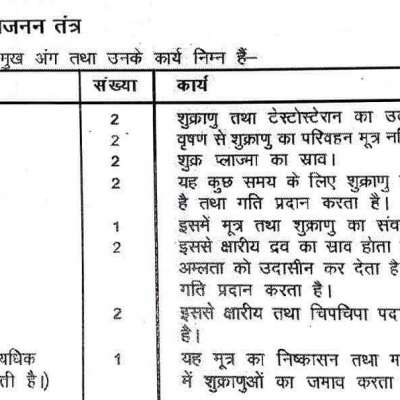 जनन तंत्र
मुख अंग तथा उनके कार्य निम्न हैं–
संख्या कार्य
2 शुक्राणु तथा टेस्टोस्टेरान का
2 वृषण से शुक्राणु का परिवहन मूत्र
2 शुक्र प्लाज्मा का स्राव।
2 यह कुछ समय के लिए शुक्राणु
है तथा गति प्रदान करता है।
1 इसमें मूत्र तथा शुक्राणु का
2 इससे क्षारीय द्रव का स्राव होता
अम्लता को उदासीन कर देता है
गति प्रदान करता है।
2 इससे क्षारीय तथा चिपचिपा
है।
यधिक 1 यह मूत्र का निष्कासन तथा
ती है।) में शुक्राणुओं का जमाव करता